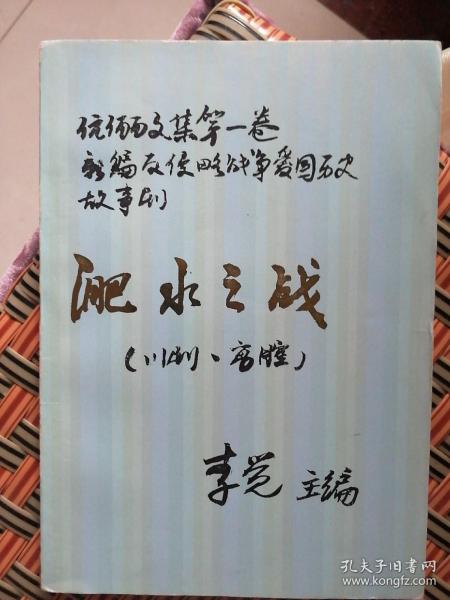 伉俪文集第一卷
新编反侵略战争爱国历史
故事剧
淝水之战
(川剧、高腔)
李觉 主编
孔夫子旧书网
www.kongfz.com